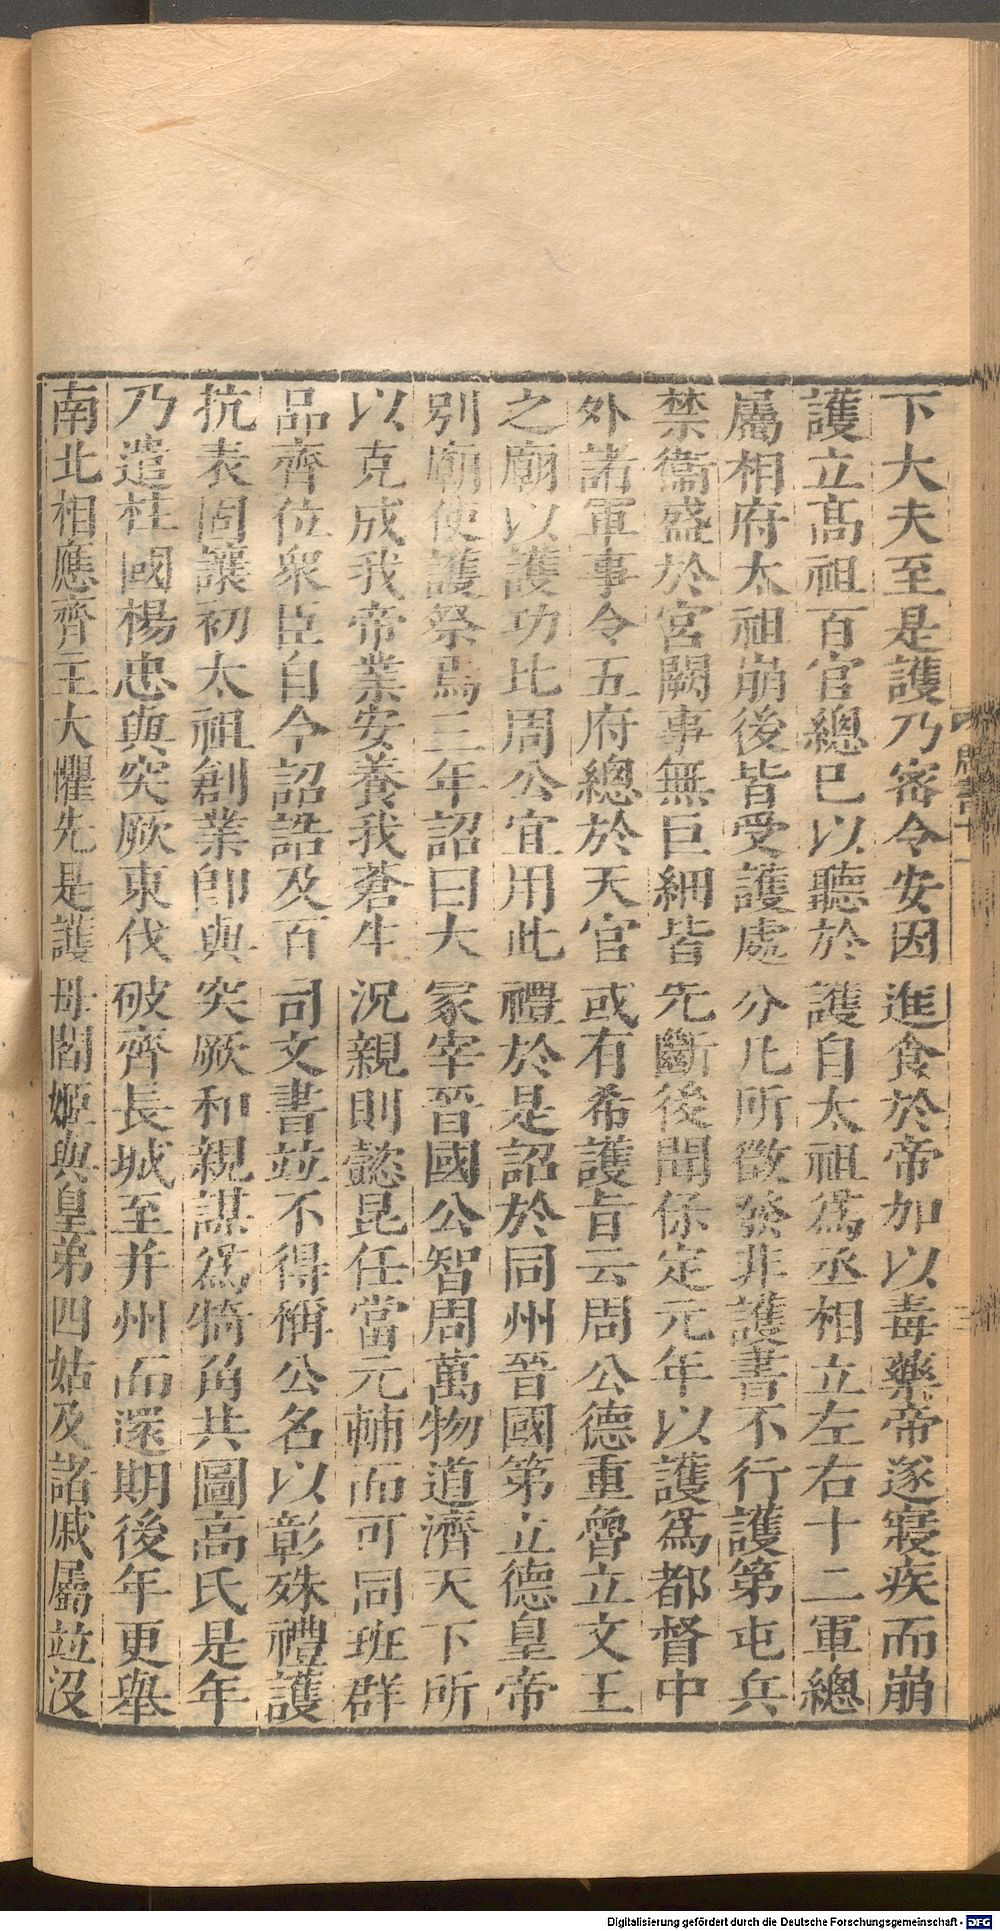 下大夫至是護乃密令安因進食於帝加以毒藥帝遂寢疾而崩
護立高祖百官總已以聽於護自太祖爲丞相立左右十二軍總
屬相府太祖崩後皆受護處分凡所徵發非護書不行護第屯兵
禁衞盛於宮闕事無巨細皆先斷後聞保定元年以護爲都督中
外諸軍事令五府總於天官或有希護旨云周公德重魯立文王
之廟以護功比周公宜用此禮於是詔於同州晉國第立德皇帝
別廟使護祭焉三年詔曰大冢宰晉國公智周萬物道濟天下所
以克成我帝業安養我蒼生況親則懿昆任當元輔而可同班群
品齊位衆臣自今詔誥及百司文書並不得稱公名以彰殊禮護
抗表固讓初太祖創業卽與突厥和親謀爲犄角共圖高氏是年
乃遣柱國楊忠與突厥東伐破齊長城至并州而還期後年更舉
南北相應齊主大懼先是護母閻姬與皇弟四姑及諸戚屬並沒
周書十一
Digitalisierung gefördert durch die Deutsche Forschungsgemeinschaft - DFG